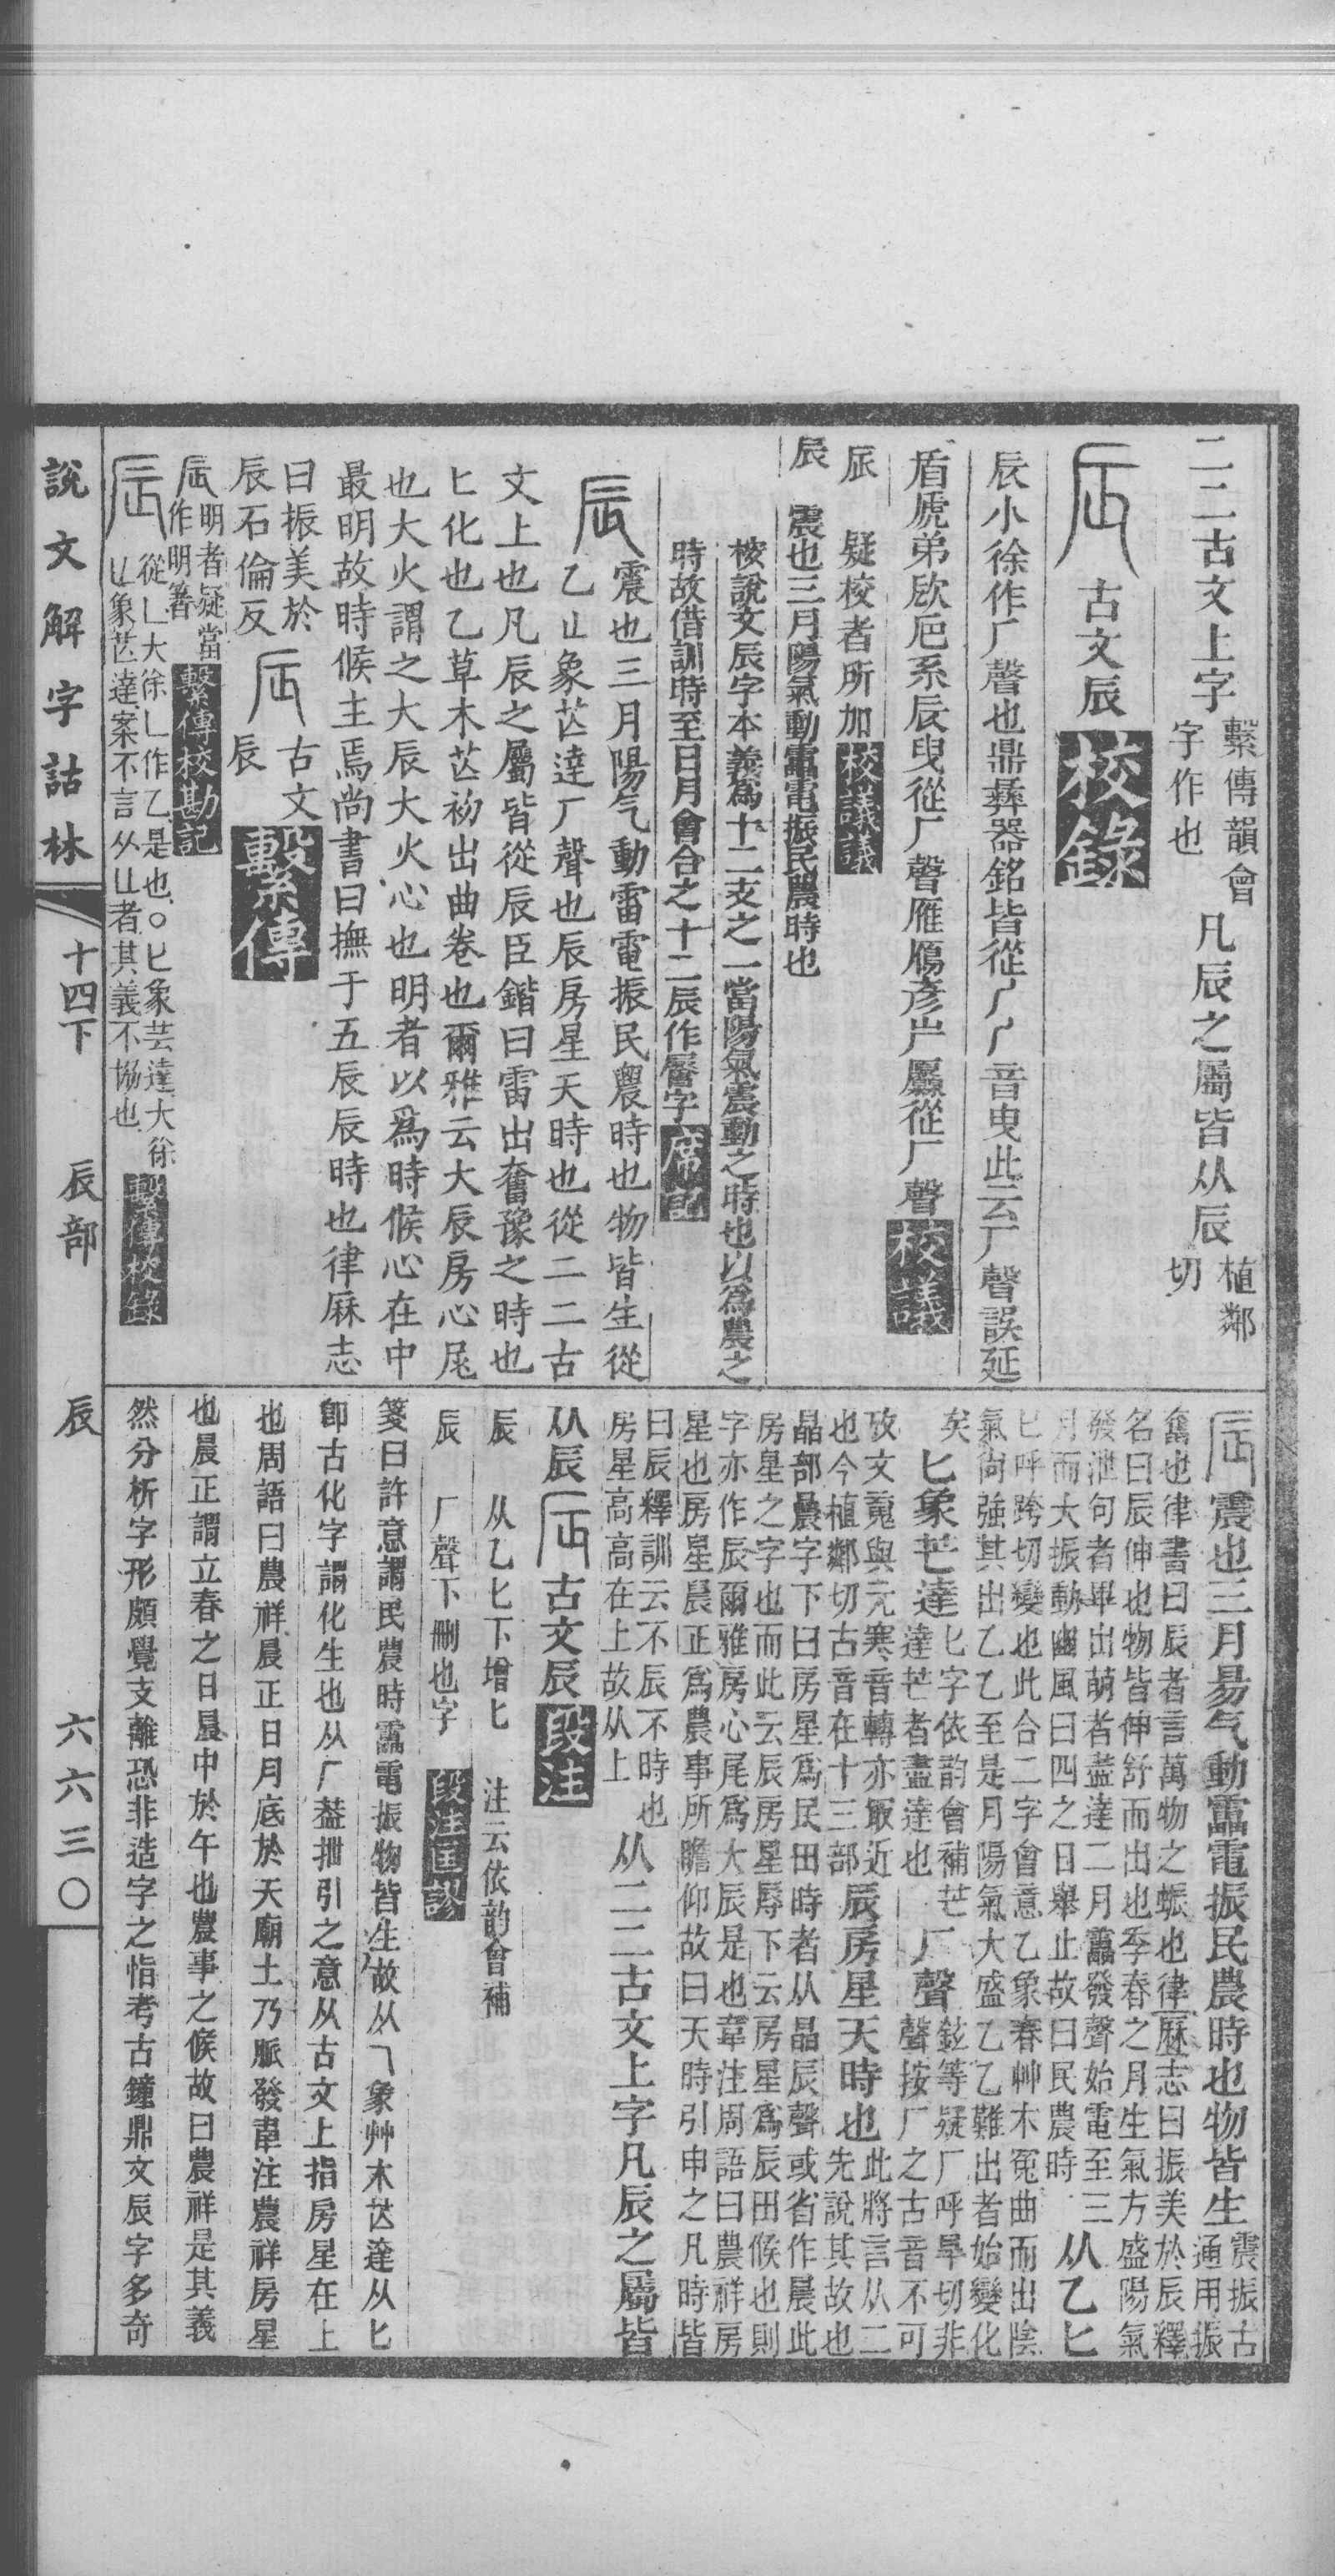 二二古文上字
繫傳韻會
字作也
凡辰之屬皆从辰
植鄰
切
古文辰
校錄
辰小徐作厂聲也鼎彝器銘皆從厂厂音曳此云厂聲誤延
盾虒弟㡿系辰曳從厂聲雁鴈彥屵厵從厂聲
校議
𠨷 疑校者所加
校議議
辰 震也三月陽氣動靁電振民農時也
桉說文辰字本義爲十二支之一當陽氣震動之時也以爲農之
時故借訓時至日月會合之十二辰作䢅字
席記
辰
震也三月陽气動雷電振民農時也物皆生從
乙止象芒達厂聲也辰房星天時也從二二古
文上也凡辰之屬皆從辰臣鍇曰雷出奮豫之時也
匕化也乙草木芒初出曲卷也爾雅云大辰房心尾
也大火謂之大辰大火心也明者以爲時候心在中
最明故時候主焉尚書曰撫于五辰辰時也律厤志
曰振美於
辰石倫反
古文
辰
繫傳
明者疑當
作明著
繫傳校勘記
從乚大徐乚作乙是也○匕象芒達大徐
凵象芒達案不言从凵者其義不協也
繫傳校錄
震也三月昜气動靁電振民農時也物皆生
震振古
通用振
奮也律書曰辰者言萬物之蜄也律厤志曰振美於辰釋
名曰辰伸也物皆伸舒而出也季春之月生氣方盛陽氣
發泄句者畢出萌者盡達二月靁發聲始電至三
月而大振動豳風曰四之日舉止故曰民農時
从乙匕
匕呼跨切變也此合二字會意乙象春艸木冤曲而出陰
氣尙強其出乙乙至是月陽氣大盛乙乙難出者始變化
矣
匕象芒達
匕字依韵會補芒
達芒者盡達也
厂聲
鉉等疑厂呼旱切非
聲按厂之古音不可
攷文䰟與元寒音轉亦冣近
也今植鄰切古音在十三部
辰房星天時也
此將言从二
先說其故也
晶部曟字下曰房星爲民田時者从晶辰聲或省作晨此
房星之字也而此云辰房星辱下云房星爲辰田候也則
字亦作辰爾雅房心尾爲大辰是也韋注周語曰農祥房
星也房星晨正爲農事所瞻仰故曰天時引申之凡時皆
曰辰釋訓云不辰不時也
房星高高在上故从上
从二二古文上字凡辰之屬皆
从辰
古文辰
段注
辰 从乙匕下增匕 注云依韵會補
辰 厂聲下刪也字
段注匡謬
箋曰許意謂民農時靁電振物皆生故从乁象艸木芒達从匕
卽古化字謂化生也从厂葢抴引之意从古文上指房星在上
也周語曰農祥晨正日月底於天廟土乃脈發韋注農祥房星
也晨正謂立春之日晨中於午也農事之候故曰農祥是其義
然分析字形頗覺支離恐非造字之恉考古鐘鼎文辰字多奇
說文解字詁林 十四下 辰部 辰 六六三〇